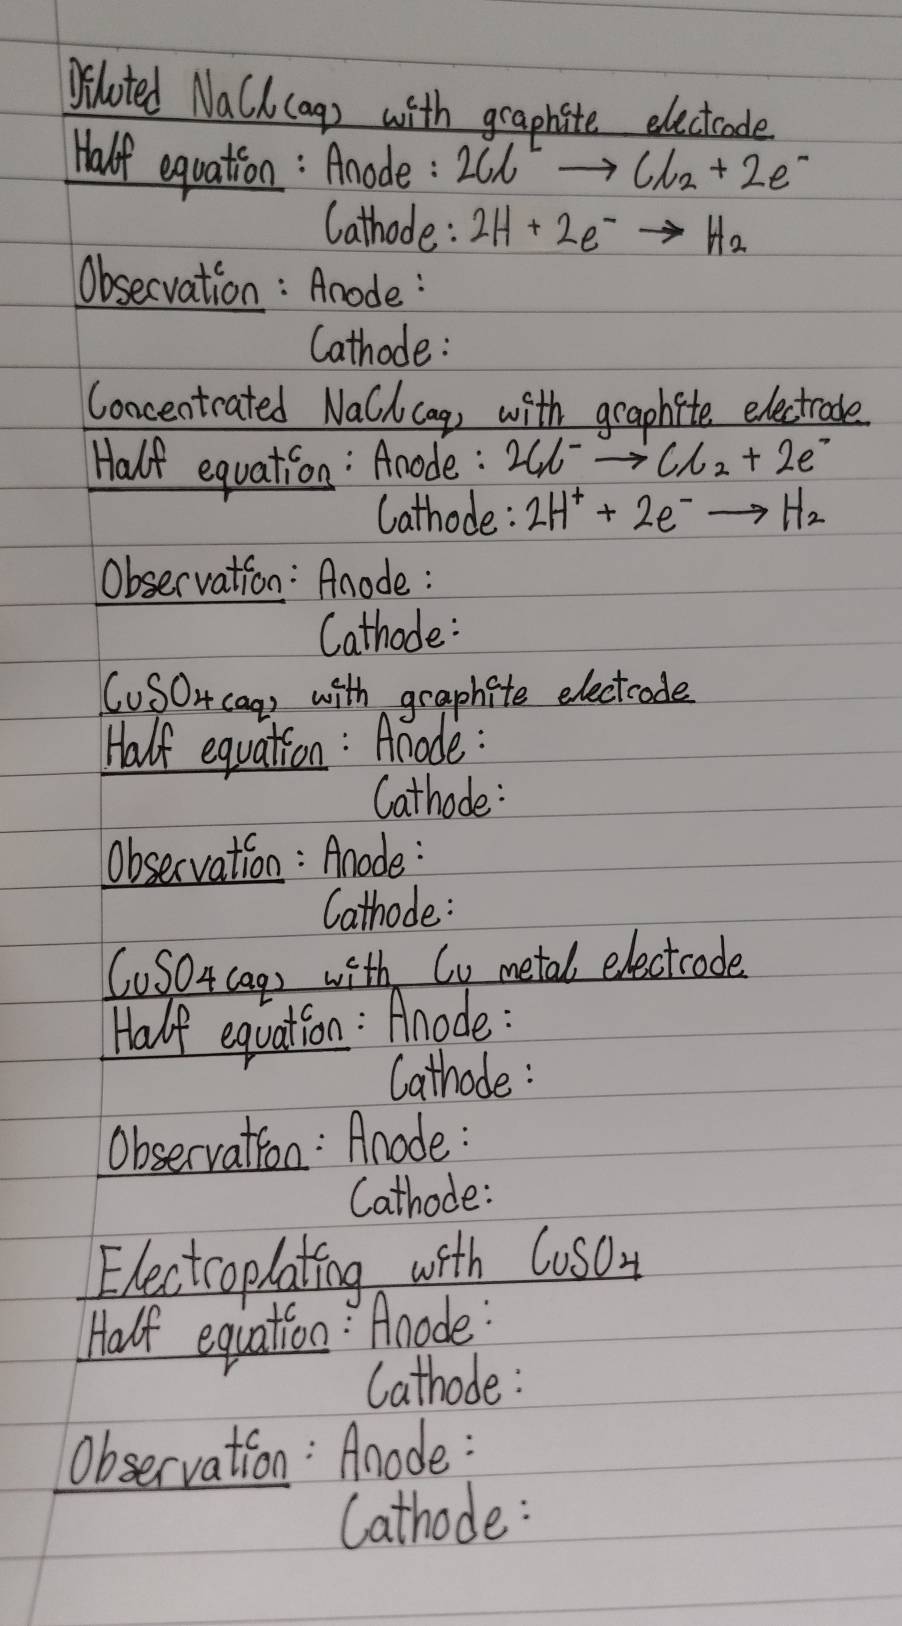 Diluted NaCl(aq) with graphite electrode
Half equation : Anode : 2Cl⁻ → Cl₂ + 2e⁻
Cathode : 2H + 2e⁻ → H₂
Observation : Anode :
Cathode :
Concentrated NaCl(aq) with graphite electrode
Half equation : Anode : 2Cl⁻ → Cl₂ + 2e⁻
Cathode : 2H⁺ + 2e⁻ → H₂
Observation : Anode :
Cathode :
CuSO₄(aq) with graphite electrode
Half equation : Anode :
Cathode :
Observation : Anode :
Cathode :
CuSO₄(aq) with Cu metal electrode
Half equation : Anode :
Cathode :
Observation : Anode :
Cathode :
Electroplating with CuSO₄
Half equation : Anode :
Cathode :
Observation : Anode :
Cathode :